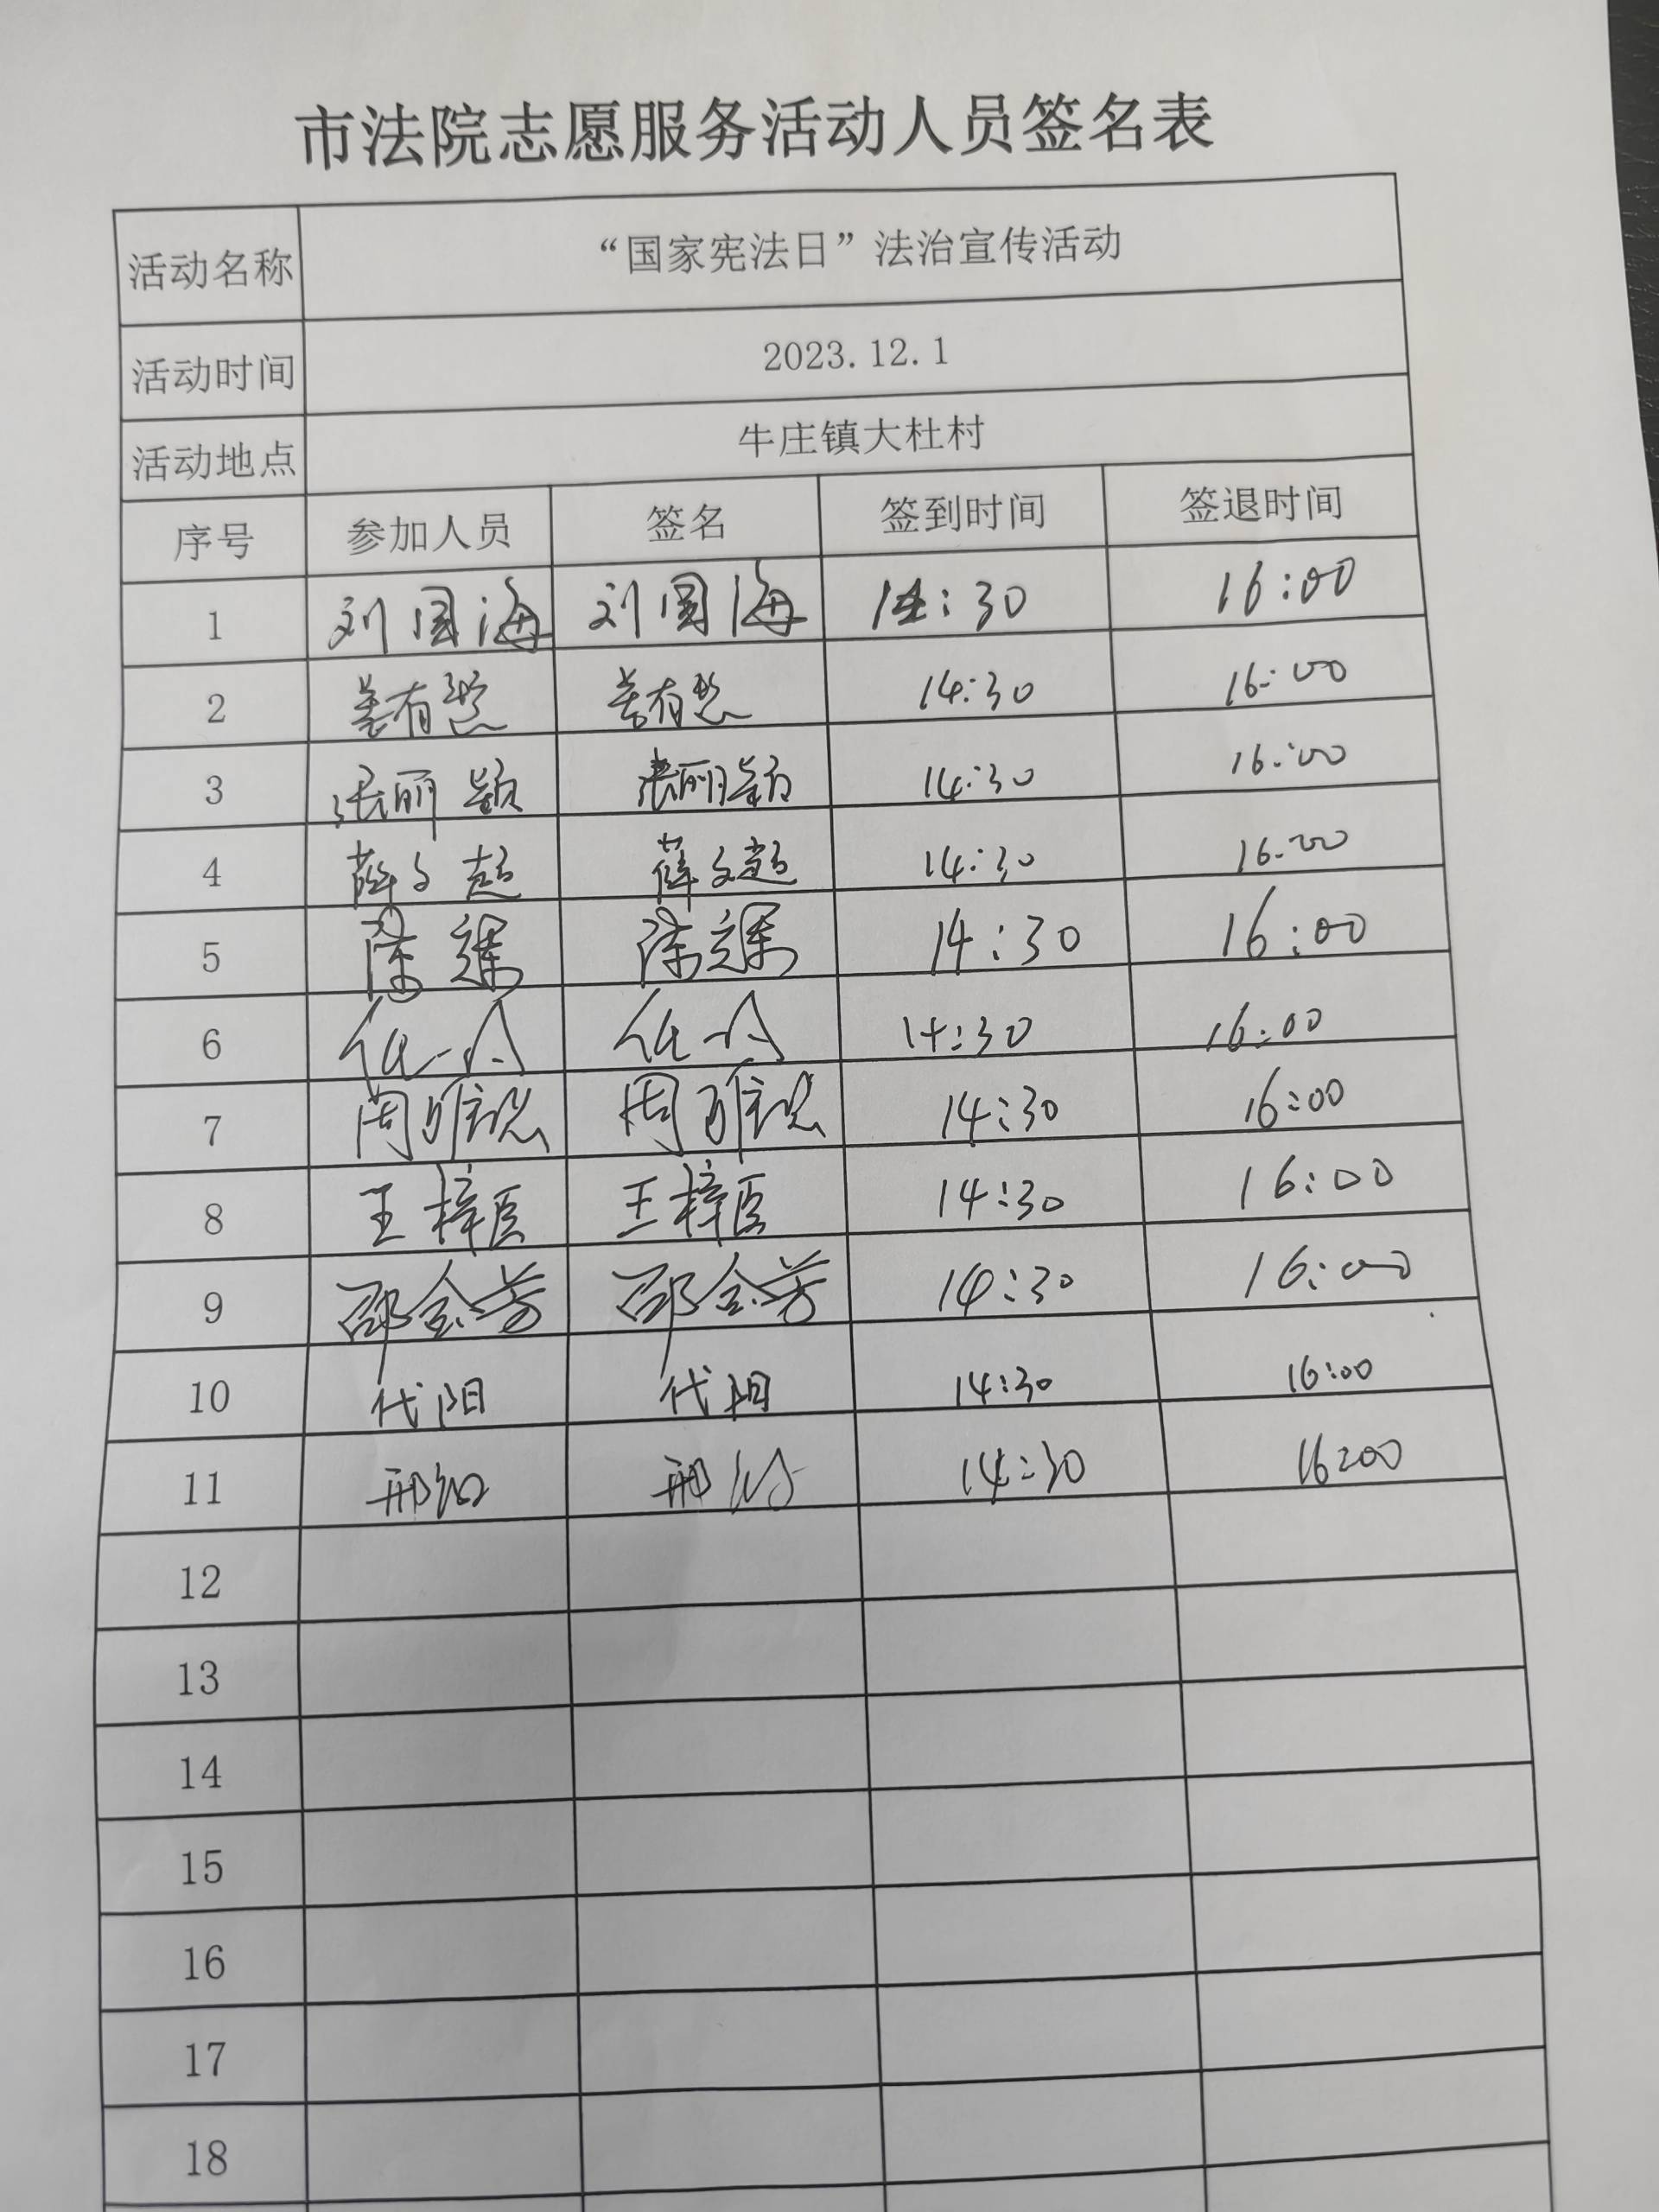 市法院志愿服务活动人员签名表
活动名称 “国家宪法日”法治宣传活动
活动时间 2023.12.1
活动地点 牛庄镇大杜村
序号 参加人员 签名 签到时间 签退时间
1 刘国海 刘国海 14:30 16:00
2 14:30 16:00
3 张丽颖 张丽颖 14:30 16:00
4 薛文超 薛文超 14:30 16:00
5 14:30 16:00
6 14:30 16:00
7 14:30 16:00
8 王梓臣 王梓臣 14:30 16:00
9 邵金芳 邵金芳 14:30 16:00
10 代阳 代阳 14:30 16:00
11 14:30 16:00
12
13
14
15
16
17
18